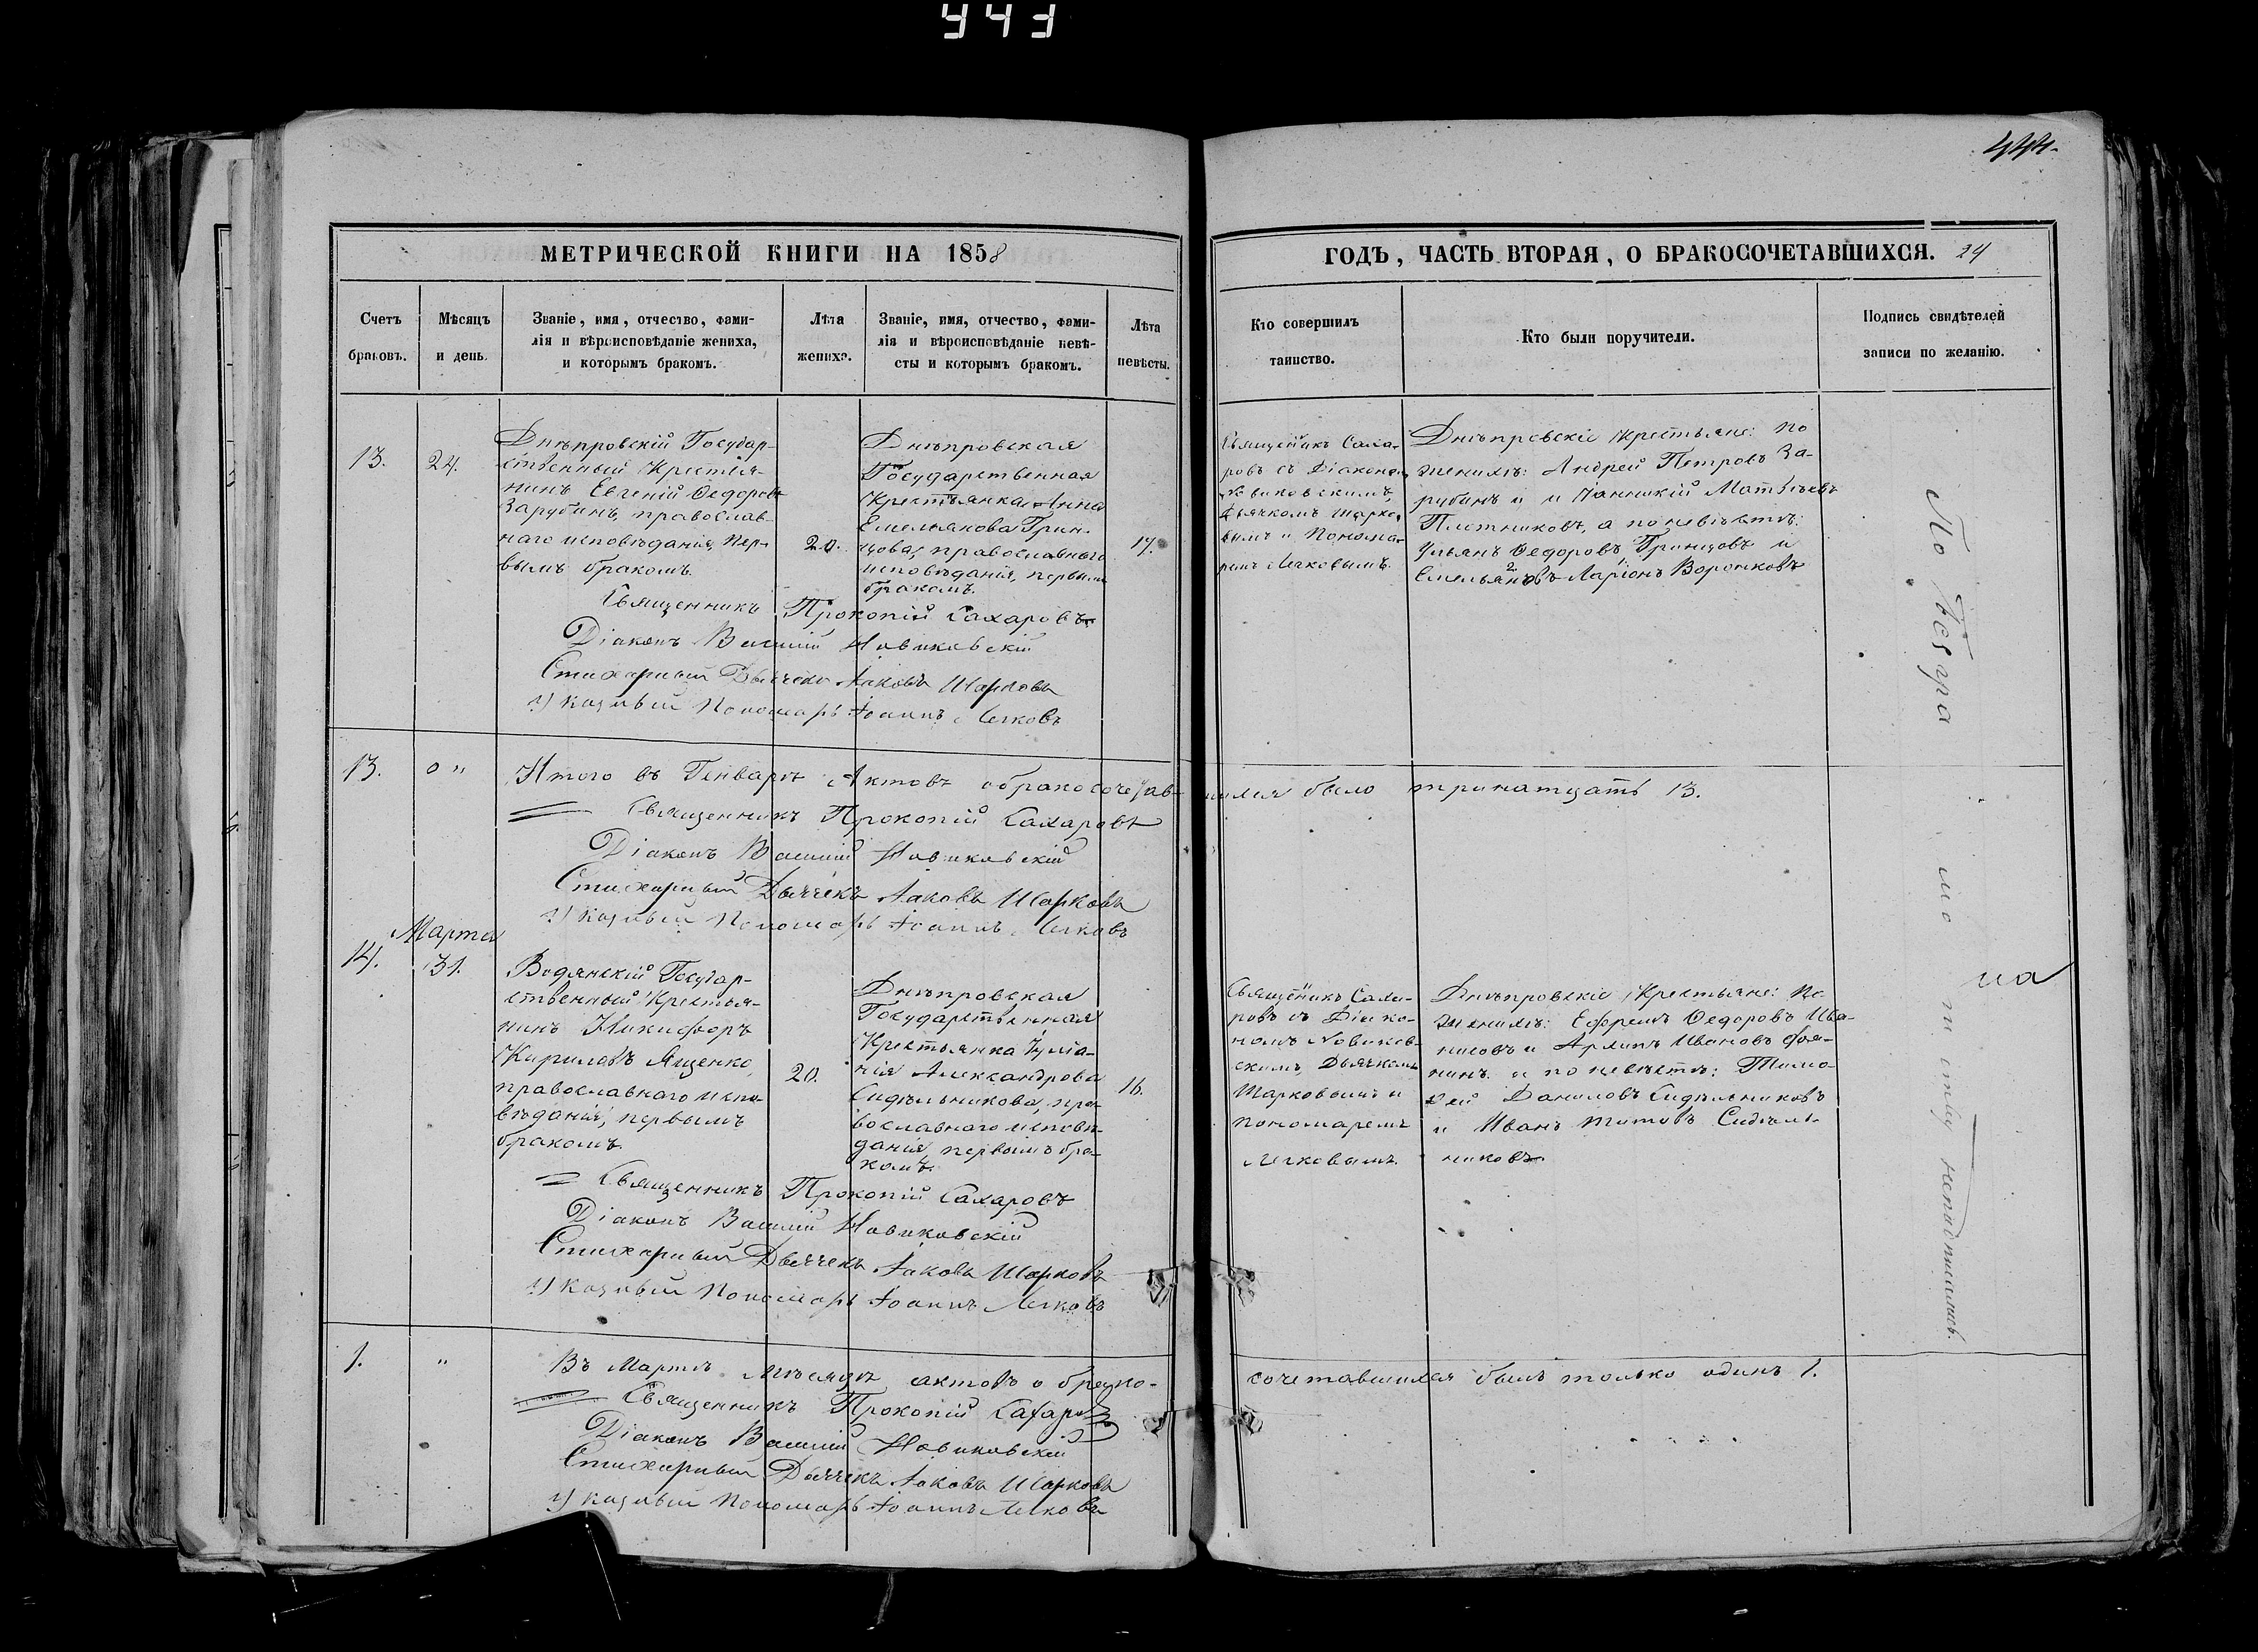 443
444.
МЕТРИЧЕСКОЙ КНИГИ НА 1858
ГОДЪ, ЧАСТЬ ВТОРАЯ, О БРАКОСОЧЕТАВШИХСЯ. 24
Счетъ
браковъ.
Мѣсяцъ
и день.
Званіе, имя, отчество, фами-
лія и вѣроисповѣданіе жениха,
и которымъ бракомъ.
Лѣта
жениха.
Званіе, имя, отчество, фами-
лія и вѣроисповѣданіе невѣ-
сты и которымъ бракомъ.
Лѣта
невѣсты.
Кто совершилъ
таинство.
Кто были поручители.
Подпись свидѣтелей
записи по желанію.
13.
24.
Днѣпровскій Государ-
ственный Крестья-
нинъ Евгеній Ѳедоровъ
Зарубинъ, православ-
наго исповѣданія, пер-
вымъ бракомъ.
20.
Днѣпровская
Государственная
Крестьянка Анна
Емельянова Грин-
цова, православнаго
исповѣданія, первымъ
бракомъ.
17.
Священникъ Саха-
ровъ съ Діакономъ
Новиковскимъ,
Дьячкомъ Шарко-
вымъ и Понома-
ремъ Легковымъ.
Днѣпровскіе крестьяне: по
женихѣ: Андрей Петровъ За-
рубинъ и Матвѣевъ
Плотниковъ, а по невѣстѣ:
Ульянъ Ѳедоровъ Гринцовъ и
Емельяновъ Ларіонъ Воронковъ
Священникъ Прокопій Сахаровъ
Діаконъ Василій Новиковскій
Стихарный Дьячекъ Іаковъ Шарковъ
Указный Пономарь Іоаннъ Легковъ
13.
0 "
Итого въ Генварѣ Актовъ о бракосочетав-
шихся было тринатцать 13.
Священникъ Прокопій Сахаровъ
Діаконъ Василій Новиковскій
Стихарный Дьячекъ Іаковъ Шарковъ
Указный Пономарь Іоаннъ Легковъ
Марта
14.
31.
Водянскій Государ-
ственный Крестья-
нинъ Никифоръ
Кириловъ Ященко,
православнаго испо-
вѣданія, первымъ
бракомъ.
20.
Днѣпровская
Государственная
Крестьянка Іуліа-
нія Александрова
Сидѣльникова, пра-
вославнаго исповѣ-
данія, первымъ бра-
комъ.
16.
Священникъ Саха-
ровъ съ Діако-
номъ Новиков-
скимъ, Дьячкомъ
Шарковымъ и
пономаремъ
Легковымъ.
Днѣпровскіе Крестьяне: по
женихѣ: Ефремъ Ѳедоровъ
и Ивановъ
и по невѣстѣ: Тимо-
фей Даниловъ Сидѣльниковъ
и Иванъ Титовъ Сидѣль-
никовъ.
Священникъ Прокопій Сахаровъ
Діаконъ Василій Новиковскій
Стихарный Дьячекъ Іаковъ Шарковъ
Указный Пономарь Іоаннъ Легковъ
1.
"
Въ Мартѣ мѣсяцѣ актовъ о брако-
сочетавшихся былъ только одинъ 1.
Священникъ Прокопій Сахаровъ
Діаконъ Василій Новиковскій
Стихарный Дьячекъ Іаковъ Шарковъ
Указный Пономарь Іоаннъ Легковъ
По безгра
мо
т
ству неподписались.